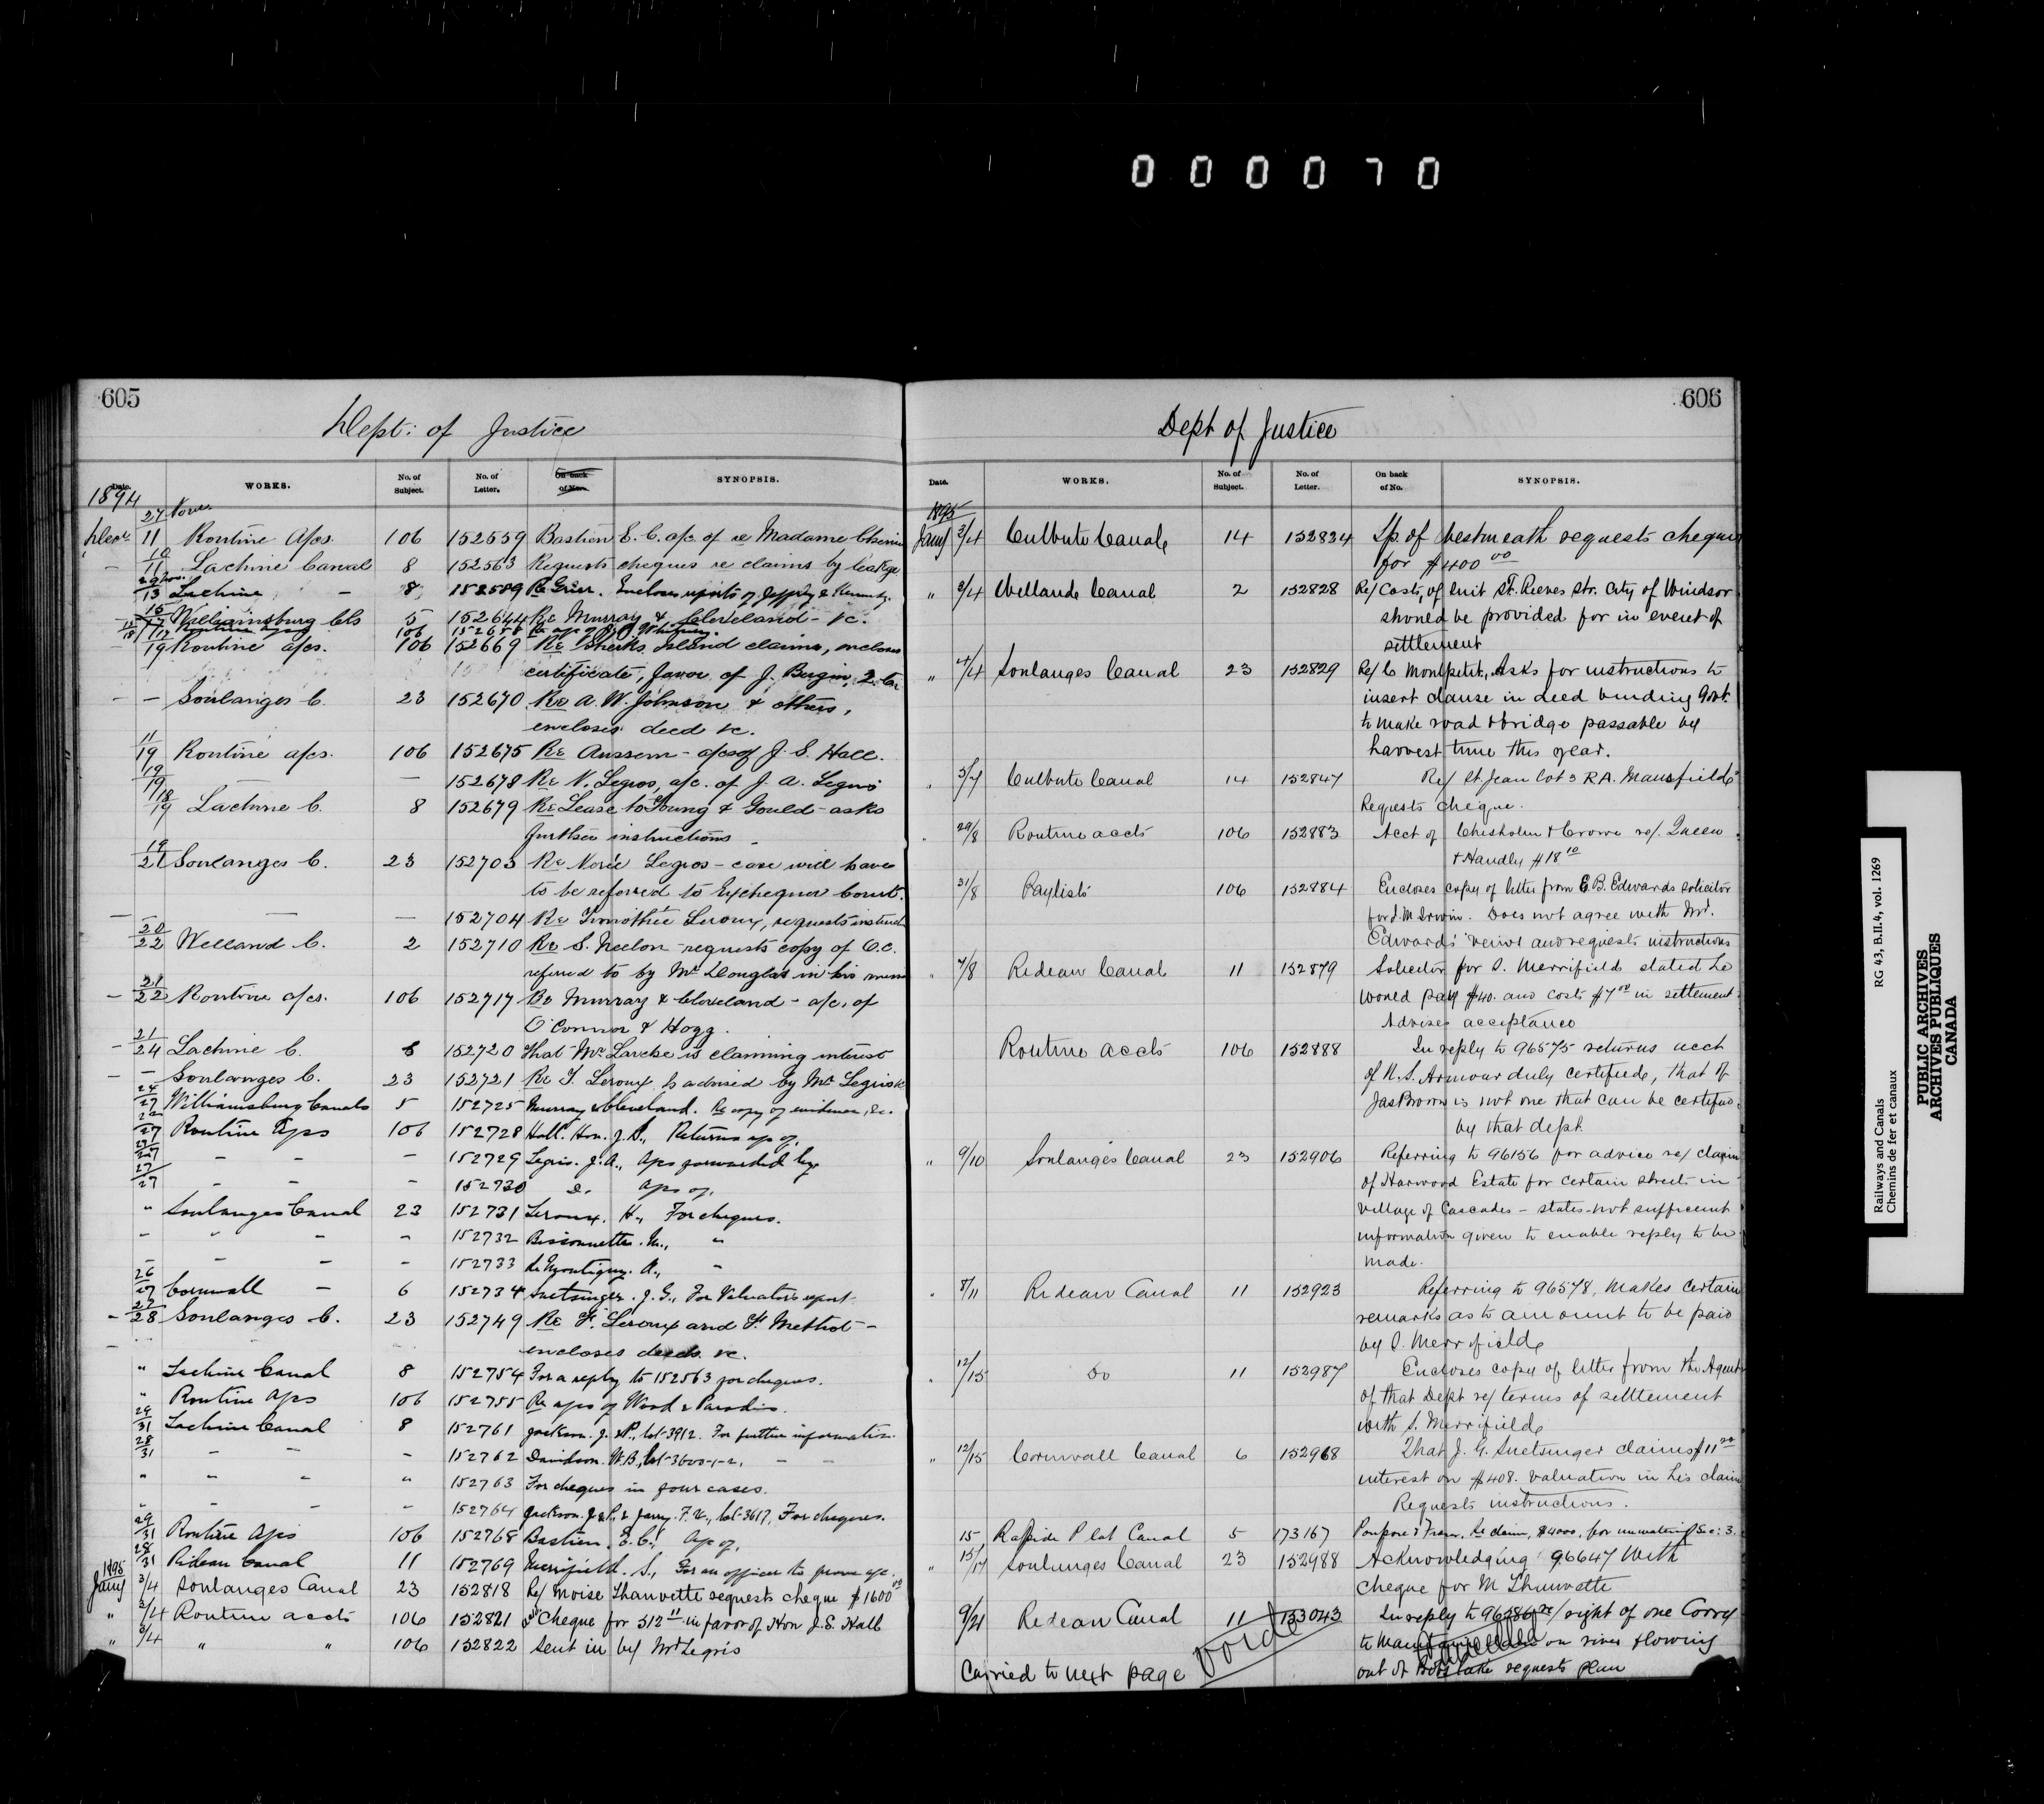 000070
605
Dept: of Justice
Date. WORKS. No. of Subject. No. of Letter. On back of No. SYNOPSIS.
1894
27 Novr
Decr 11 Routine a/cs. 106 152559 Bastien E. C. a/c of re Madame
10/11 Lachine Canal 8 152563 Requests cheques re claims by leakge
29 Nov/13 Lachine - 8 152589 Re Grier. Encloses reports of Jeffrey & Kennedy.
15/17 Williamsburg Cls 5 152644 Re Murray & Cleveland - &c.
15/18 17/19 106 Re a/c of
19 Routine a/cs. 106 152669 Re Sheiks Island claims, encloses
certificate, favor of J. Bergin, 2
- - Soulanges C. 23 152670 Re A. W. Johnson & others,
encloses deed &c.
11/19 Routine a/cs. 106 152675 Re Aussem - a/cs of J. S. Hall.
19/19 - 152678 Re N. Legros, a/c. of J. A. Legris
18/19 Lachine C. 8 152679 Re Lease to Young & Gould - asks
further instructions -
19/21 Soulanges C. 23 152703 Re Noré Legros - case will have
to be referred to Exchequer Court.
- - - 152704 Re Timothée Leroux, requests instruct
20/22 Welland C. 2 152710 Re S. Neelon - requests copy of O.C.
referred to by Mr Douglas in his memo
- 21/22 Routine a/cs. 106 152717 Re Murray & Cleveland - a/c. of
O'Connor & Hogg.
- 21/24 Lachine C. 8 152720 that Mr Larcke is claiming interest
- - Soulanges C. 23 152721 Re T. Leroux, is advised by Mr Legris &c
24/27 Williamsburg Canals 5 152725 Murray & Cleveland. Re copy of evidence, &c.
22/27 Routine a/cs 106 152728 Hall. Hon. J. S., Returns a/c of.
27/27 - - - 152729 Legris. J. A., A/cs forwarded by
27/27 - - - 152730 do. A/cs of.
" Soulanges Canal 23 152731 Leroux. H., For cheques.
- - - - 152732 Bissonnette. M., "
- - - - 152733 De Montigny. A., "
26/27 Cornwall - 6 152734 Snetsinger. J. G., For Valuators report.
- 27/28 Soulanges C. 23 152749 Re F. Leroux and F. Methot -
encloses deeds &c.
" Lachine Canal 8 152754 For a reply to 152563 for cheques.
" Routine a/cs 106 152755 Re a/cs of Wood & Paradis.
29/31 Lachine Canal 8 152761 Jackson. J. & P., lot-3912. For further information.
28/31 - - - 152762 Davidson. W. B., lot-3600-1-2, - -
" " " " 152763 For cheques in four cases.
" - - - 152764 Jackson. J. & P., & Jarry. F. X., lot-3617, For cheques.
29/31 Routine a/cs 106 152768 Bastien. E. C., A/c of,
28/31 Rideau Canal 11 152769 Merrifield. S., For an officer to prove a/c.
1895
Jany 3/4 Soulanges Canal 23 152818 Re/ Moise Charrette requests cheque $1600 00
" 2/4 Routine accts 106 152821 Cheque for 512 11 in favor of Hon J. S. Hall
" 3/4 " " 106 152822 sent in by Mr Legris
606
Dept of Justice
Date. WORKS. No. of Subject. No. of Letter. On back of No. SYNOPSIS.
1895
Jany 3/4 Culbute Canal 14 152834 Tp. of Westmeath requests cheque
for $400 00
" 2/4 Welland Canal 2 152828 Re/ Costs, of suit St. Reeves Str. City of Windsor
should be provided for in event of
settlement
" 4/4 Soulanges Canal 23 152829 Re/ C Montpetit., Asks for instructions to
insert clause in deed binding Govt.
to make road & bridge passable by
harvest time this year.
" 5/7 Culbute Canal 14 152847 Re/ St. Jean lot 3 R A. Mansfield
Requests cheque.
" 29/8 Routine accts 106 152883 Acct of Chisholm & Crowe re/. Queen
& Handly $18 10
31/8 Paylists 106 152884 Encloses copy of letter from E. B. Edwards solicitor
for J. M Irwin. Does not agree with Mr.
Edwards' veiws and requests instructions
" 7/8 Rideau Canal 11 152879 Solicitor for S. Merrifield stated he
would pay $40. and costs $7 00 in settlement.
Advises acceptance
Routine accts 106 152888 In reply to 96575 returns acct
of N. S. Armour duly certified, that of
Jas Brown is not one that can be certified
by that dept.
" 9/10 Soulanges Canal 23 152906 Referring to 96156 for advice re/ claim
of Harwood Estate for certain streets in
village of Cascades - states not sufficient
information given to enable reply to be
made.
" 8/11 Rideau Canal 11 152923 Referring to 96578, Makes certain
remarks as to amount to be paid
by S. Merrifield
" 12/15 Do 11 152987 Encloses copy of letter from the Agents
of that Dept re/ terms of settlement
with S. Merrifield
" 12/15 Cornwall Canal 6 152968 That J. G. Snetsinger claims $11
interest on $408. valuation in his claim
Requests instructions.
15 Rapide Plat Canal 5 173167 Poupore & Fraser. Re claim, $4000, for unwatering Sec: 3.
" 15/17 Soulanges Canal 23 152988 Acknowledging 96647 with
cheque for M Charrette
9/21 Rideau Canal 11 153043 In reply to 96286 re/ right of one Corry
to Maintain on river flowing
out of Bobs Lake requests plan
Cancelled
Carried to next page Voide
Railways and Canals
Chemins de fer et canaux
RG 43, B.II.4, vol. 1269
PUBLIC ARCHIVES
ARCHIVES PUBLIQUES
CANADA